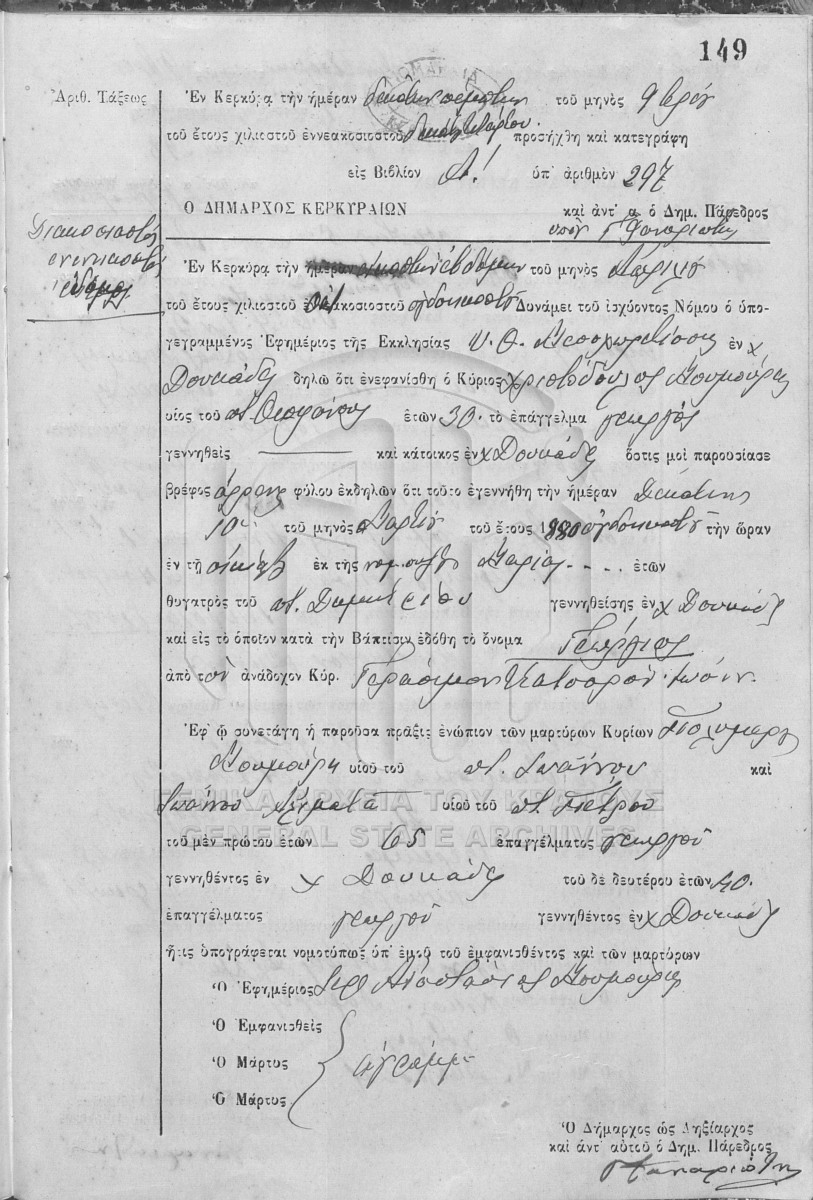 149
Ἀριθ. Τάξεως
Ἐν Κερκύρᾳ τὴν ἡμέραν δεκάτην πέμπτην τοῦ μηνὸς 9βρίου
τοῦ ἔτους χιλιοστοῦ ἐννεακοσιοστοῦ προσήχθη καὶ κατεγράφη
εἰς Βιβλίον Α! ὑπ' ἀριθμὸν 297
Ο ΔΗΜΑΡΧΟΣ ΚΕΡΚΥΡΑΙΩΝ
καὶ ἀντ' α. ὁ Δημ. Πάρεδρος
Διακοσιοστὸς
ἐνενηκοστὸς
ἕβδομος
Ἐν Κερκύρᾳ τὴν ἡμέραν εἰκοστὴν ἑβδόμην τοῦ μηνὸς Ἀπριλίου
τοῦ ἔτους χιλιοστοῦ ὀκτακοσιοστοῦ ὀγδοηκοστοῦ Δυνάμει τοῦ ἰσχύοντος Νόμου ὁ ὑπο-
γεγραμμένος Ἐφημέριος τῆς Ἐκκλησίας Υ. Θ. ἐν χ
Δουκάδες δηλῶ ὅτι ἐνεφανίσθη ὁ Κύριος Χριστόδουλος Κουμούρης
υἱὸς τοῦ π. Θεοφάνους ἐτῶν 30. τὸ ἐπάγγελμα γεωργὸς
γεννηθεὶς —— καὶ κάτοικος ἐν χ Δουκάδες ὅστις μοὶ παρουσίασε
βρέφος ἄρρεν φύλου ἐκδηλῶν ὅτι τοῦτο ἐγεννήθη τὴν ἡμέραν Δεκάτην
10 τοῦ μηνὸς Μαρτίου τοῦ ἔτους 1880 ὀγδοηκοστοῦ τὴν ὥραν
ἐν τῇ οἰκίᾳ ἐκ τῆς νομ. συζύγου Μαρίας - - - . ἐτῶν
θυγατρὸς τοῦ π. Δημητρίου γεννηθείσης ἐν χ Δουκάδες
καὶ εἰς τὸ ὁποῖον κατὰ τὴν Βάπτισιν ἐδόθη τὸ ὄνομα Γεώργιος
ἀπὸ τὸν ἀνάδοχον Κύρ. Γεράσιμον Κατσαρὸν
Ἐφ' ᾧ συνετάγη ἡ παροῦσα πρᾶξις ἐνώπιον τῶν μαρτύρων Κυρίων Πολυμέρη
Κουμούρη υἱοῦ τοῦ π. Ἰωάννου καὶ
Ἰωάννου Κληματᾶ υἱοῦ τοῦ π. Πέτρου
ΓΕΝΙΚΑ ΑΡΧΕΙΑ ΤΟΥ ΚΡΑΤΟΥΣ
GENERAL STATE ARCHIVES
τοῦ μὲν πρώτου ἐτῶν 65 ἐπαγγέλματος γεωργοῦ
γεννηθέντος ἐν χ Δουκάδες τοῦ δὲ δευτέρου ἐτῶν 40.
ἐπαγγέλματος γεωργοῦ γεννηθέντος ἐν χ Δουκάδες
ἥτις ὑπογράφεται νομοτύπως ὑπ' ἐμοῦ τοῦ ἐμφανισθέντος καὶ τῶν μαρτύρων
Ὁ Ἐφημέριος Ἱερ. Ἀναστάσιος Κουμούρης
Ὁ Ἐμφανισθεὶς
Ὁ Μάρτυς ἀγράμμ.
Ὁ Μάρτυς
Ὁ Δήμαρχος ὡς Ληξίαρχος
καὶ ἀντ' αὐτοῦ ὁ Δημ. Πάρεδρος